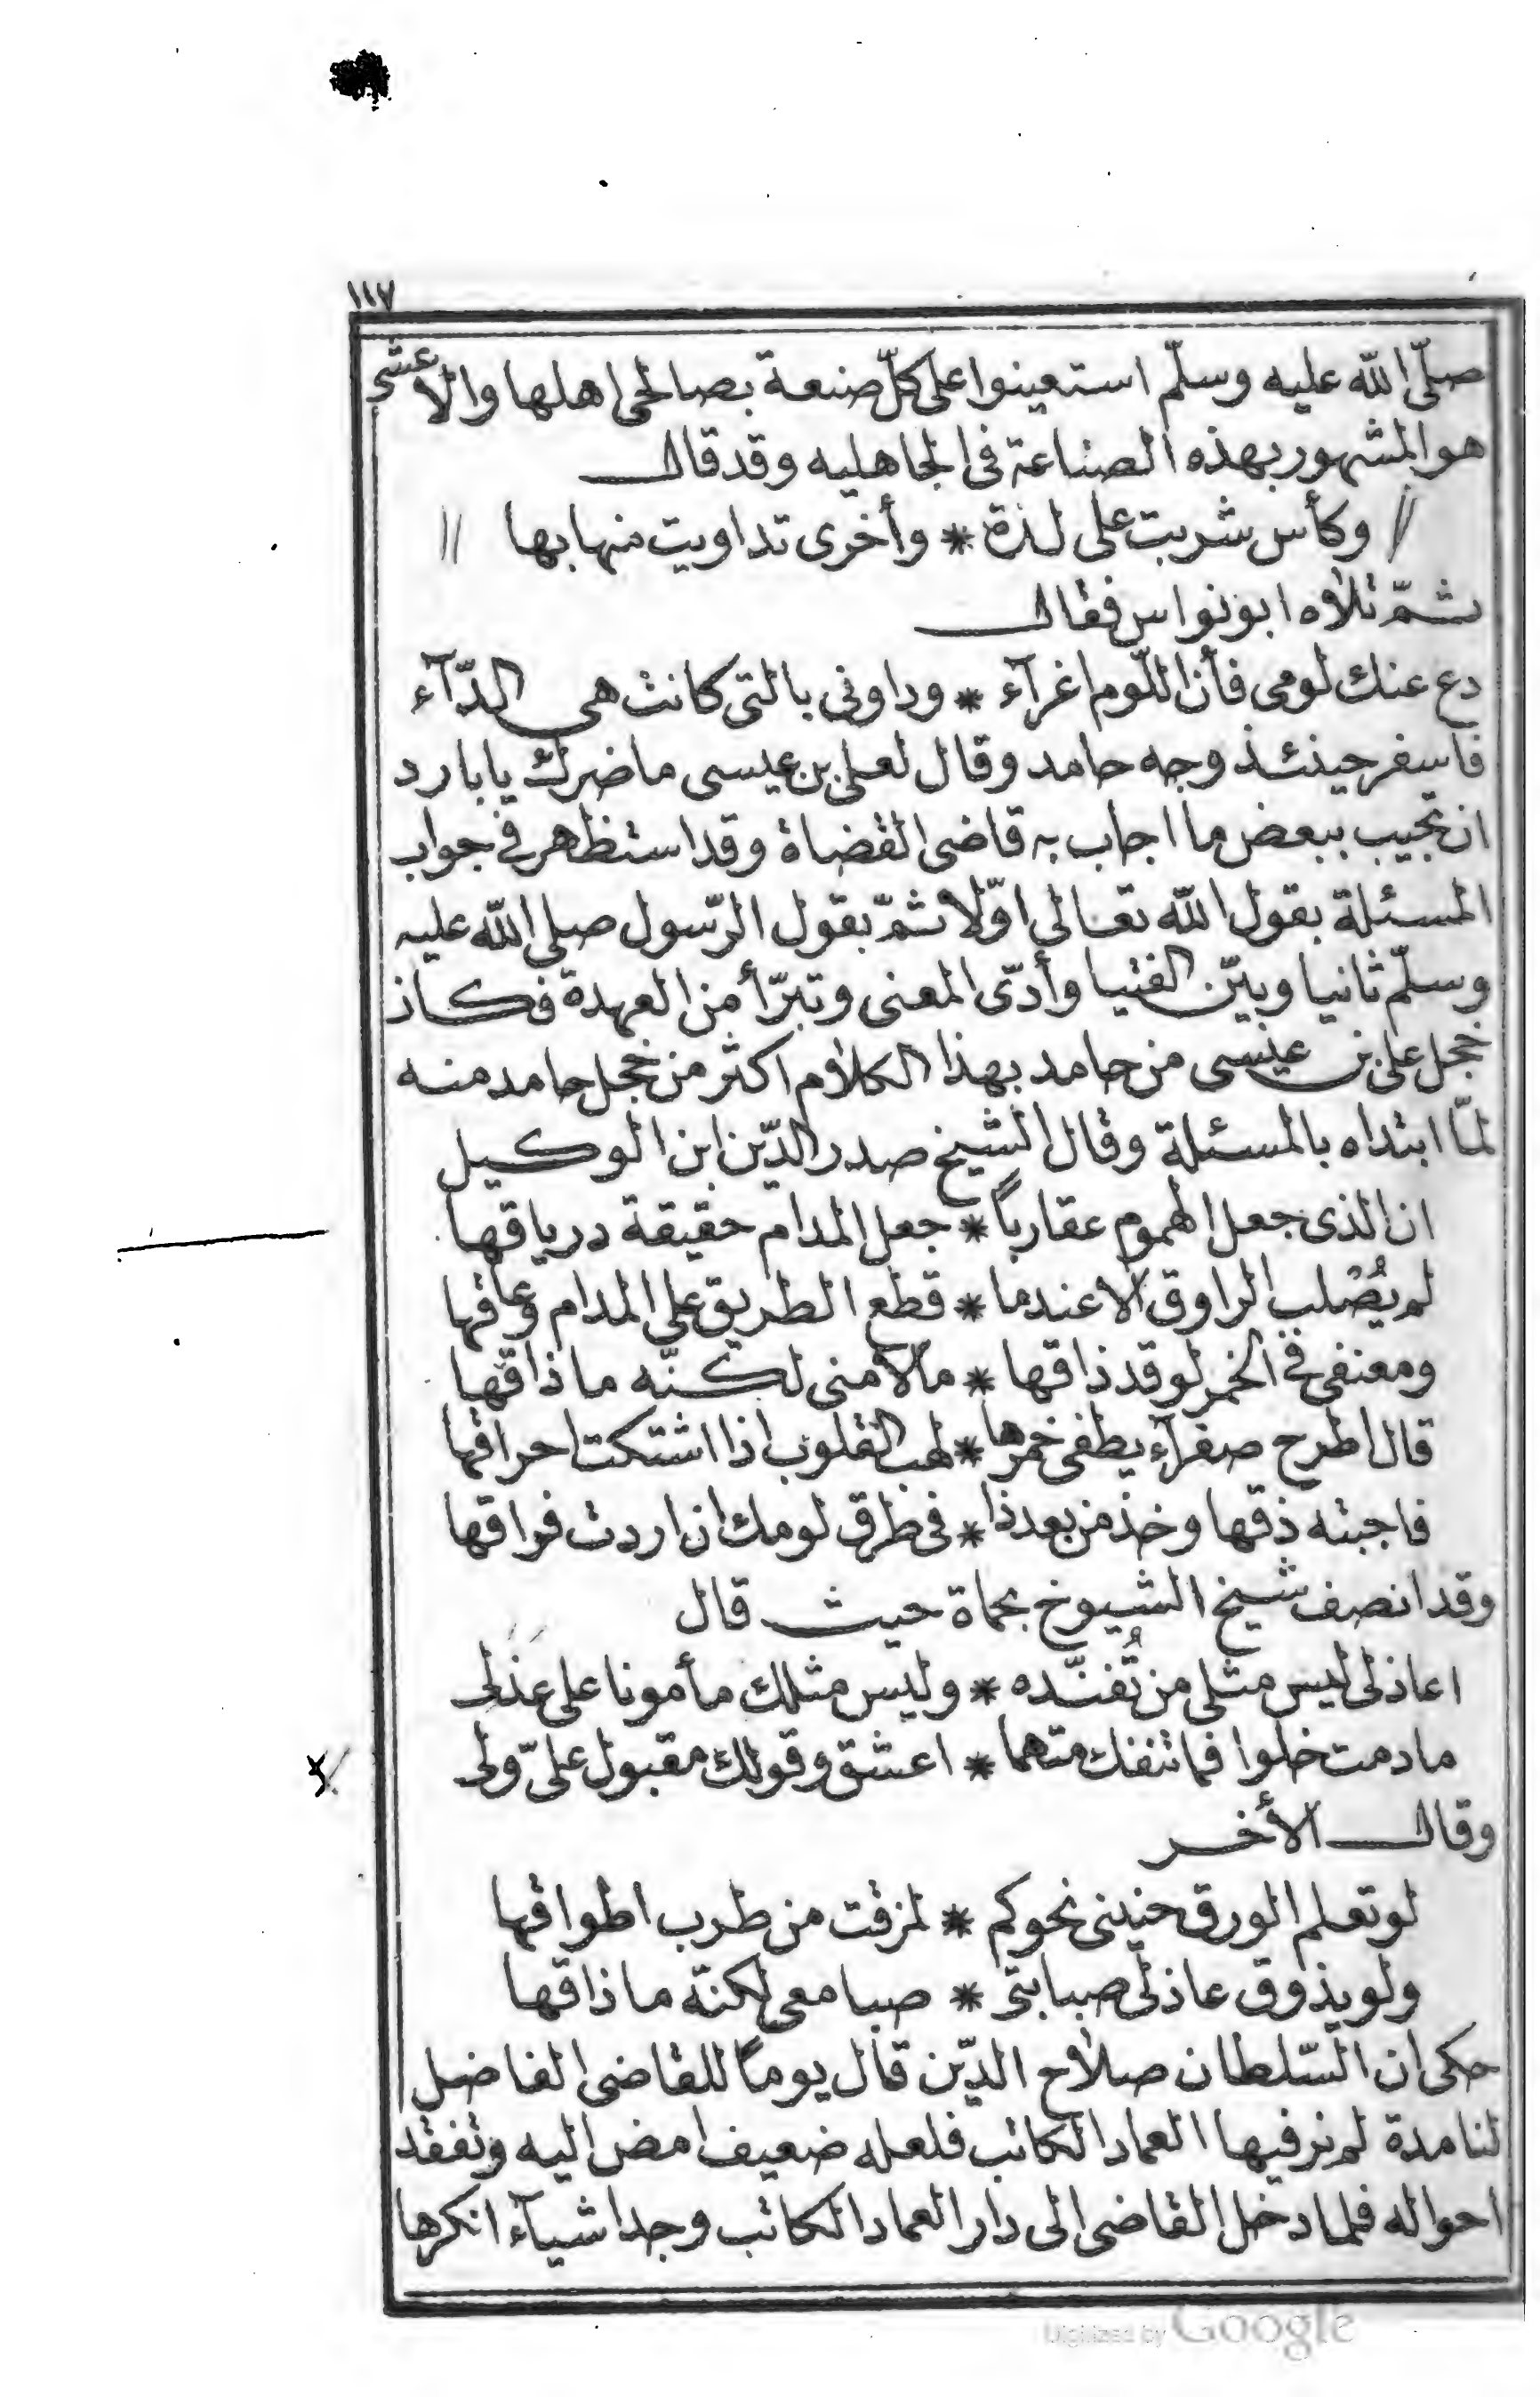 ١١٧
صلّى الله عليه وسلّم استعينوا على كلّ صنعة بصالحى اهلها والاعشى
هو المشهور بهذه الصناعة فى الجاهليه وقد قال
وكأس شربت على لذة * وأخرى تداويت منها بها
ثمّ تلاه ابو نواس فقال
دع عنك لومى فأن اللّوم اغرآء * وداونى بالتى كانت هى الدّآء
فاسفر حينئذ وجه حامد وقال لعلى بن عيسى ما ضرك يا بارد
ان تجيب ببعض ما اجاب به قاضى القضاة وقد استظهر فى جواب
المسئلة بقول الله تعالى اوّلا ثمّ بقول الرّسول صلى الله عليه
وسلّم ثانيا وبيّن الفتيا وأدّى المعنى وتبرّأ من العهدة فكان
خجل على بن عيسى من حامد بهذا الكلام اكثر من خجل حامد منه
لمّا ابتداه بالمسئلة وقال الشيخ صدر الدّين ابن الوكيل
ان الذى جعل الهموم عقارباً * جعل المدام حقيقة درياقها
لم يُصْلب الراوق الا عندما * قطع الطريق على المدام وعاقها
ومعنفى فى الخمر لو قد ذاقها * ما لامنى لكنّه ما ذاقها
قال اطرح صفرآء يطفى خمرها * لهب القلوب اذا اشتكت احراقها
فاجبته ذقها وخذ من بعد ذا * فى طرق لومك ان اردت فواقها
وقد انصف شيخ الشيوخ بحماة حيث قال
اعاذلى ليس مثلى من تُفنّده * وليس مثلك مأمونا على عذلى
ما دمت خلوا فما تنفك متهما * اعشق وقولك مقبول علىّ ولى
وقال الأخر
لو تعلم الورق حنينى نحوكم * لمزقت من طرب اطواقها
ولو يذوق عاذلى صبابتى * صبا معى لكنّه ما ذاقها
حكى ان السّلطان صلاح الدّين قال يوماً للقاضى الفاضل
لنا مدة لم نر فيها العماد الكاتب فلعله ضعيف امض اليه وتفقد
احواله فلما دخل القاضى الى دار العماد الكاتب وجد اشيآء انكرها
Digitized by Google